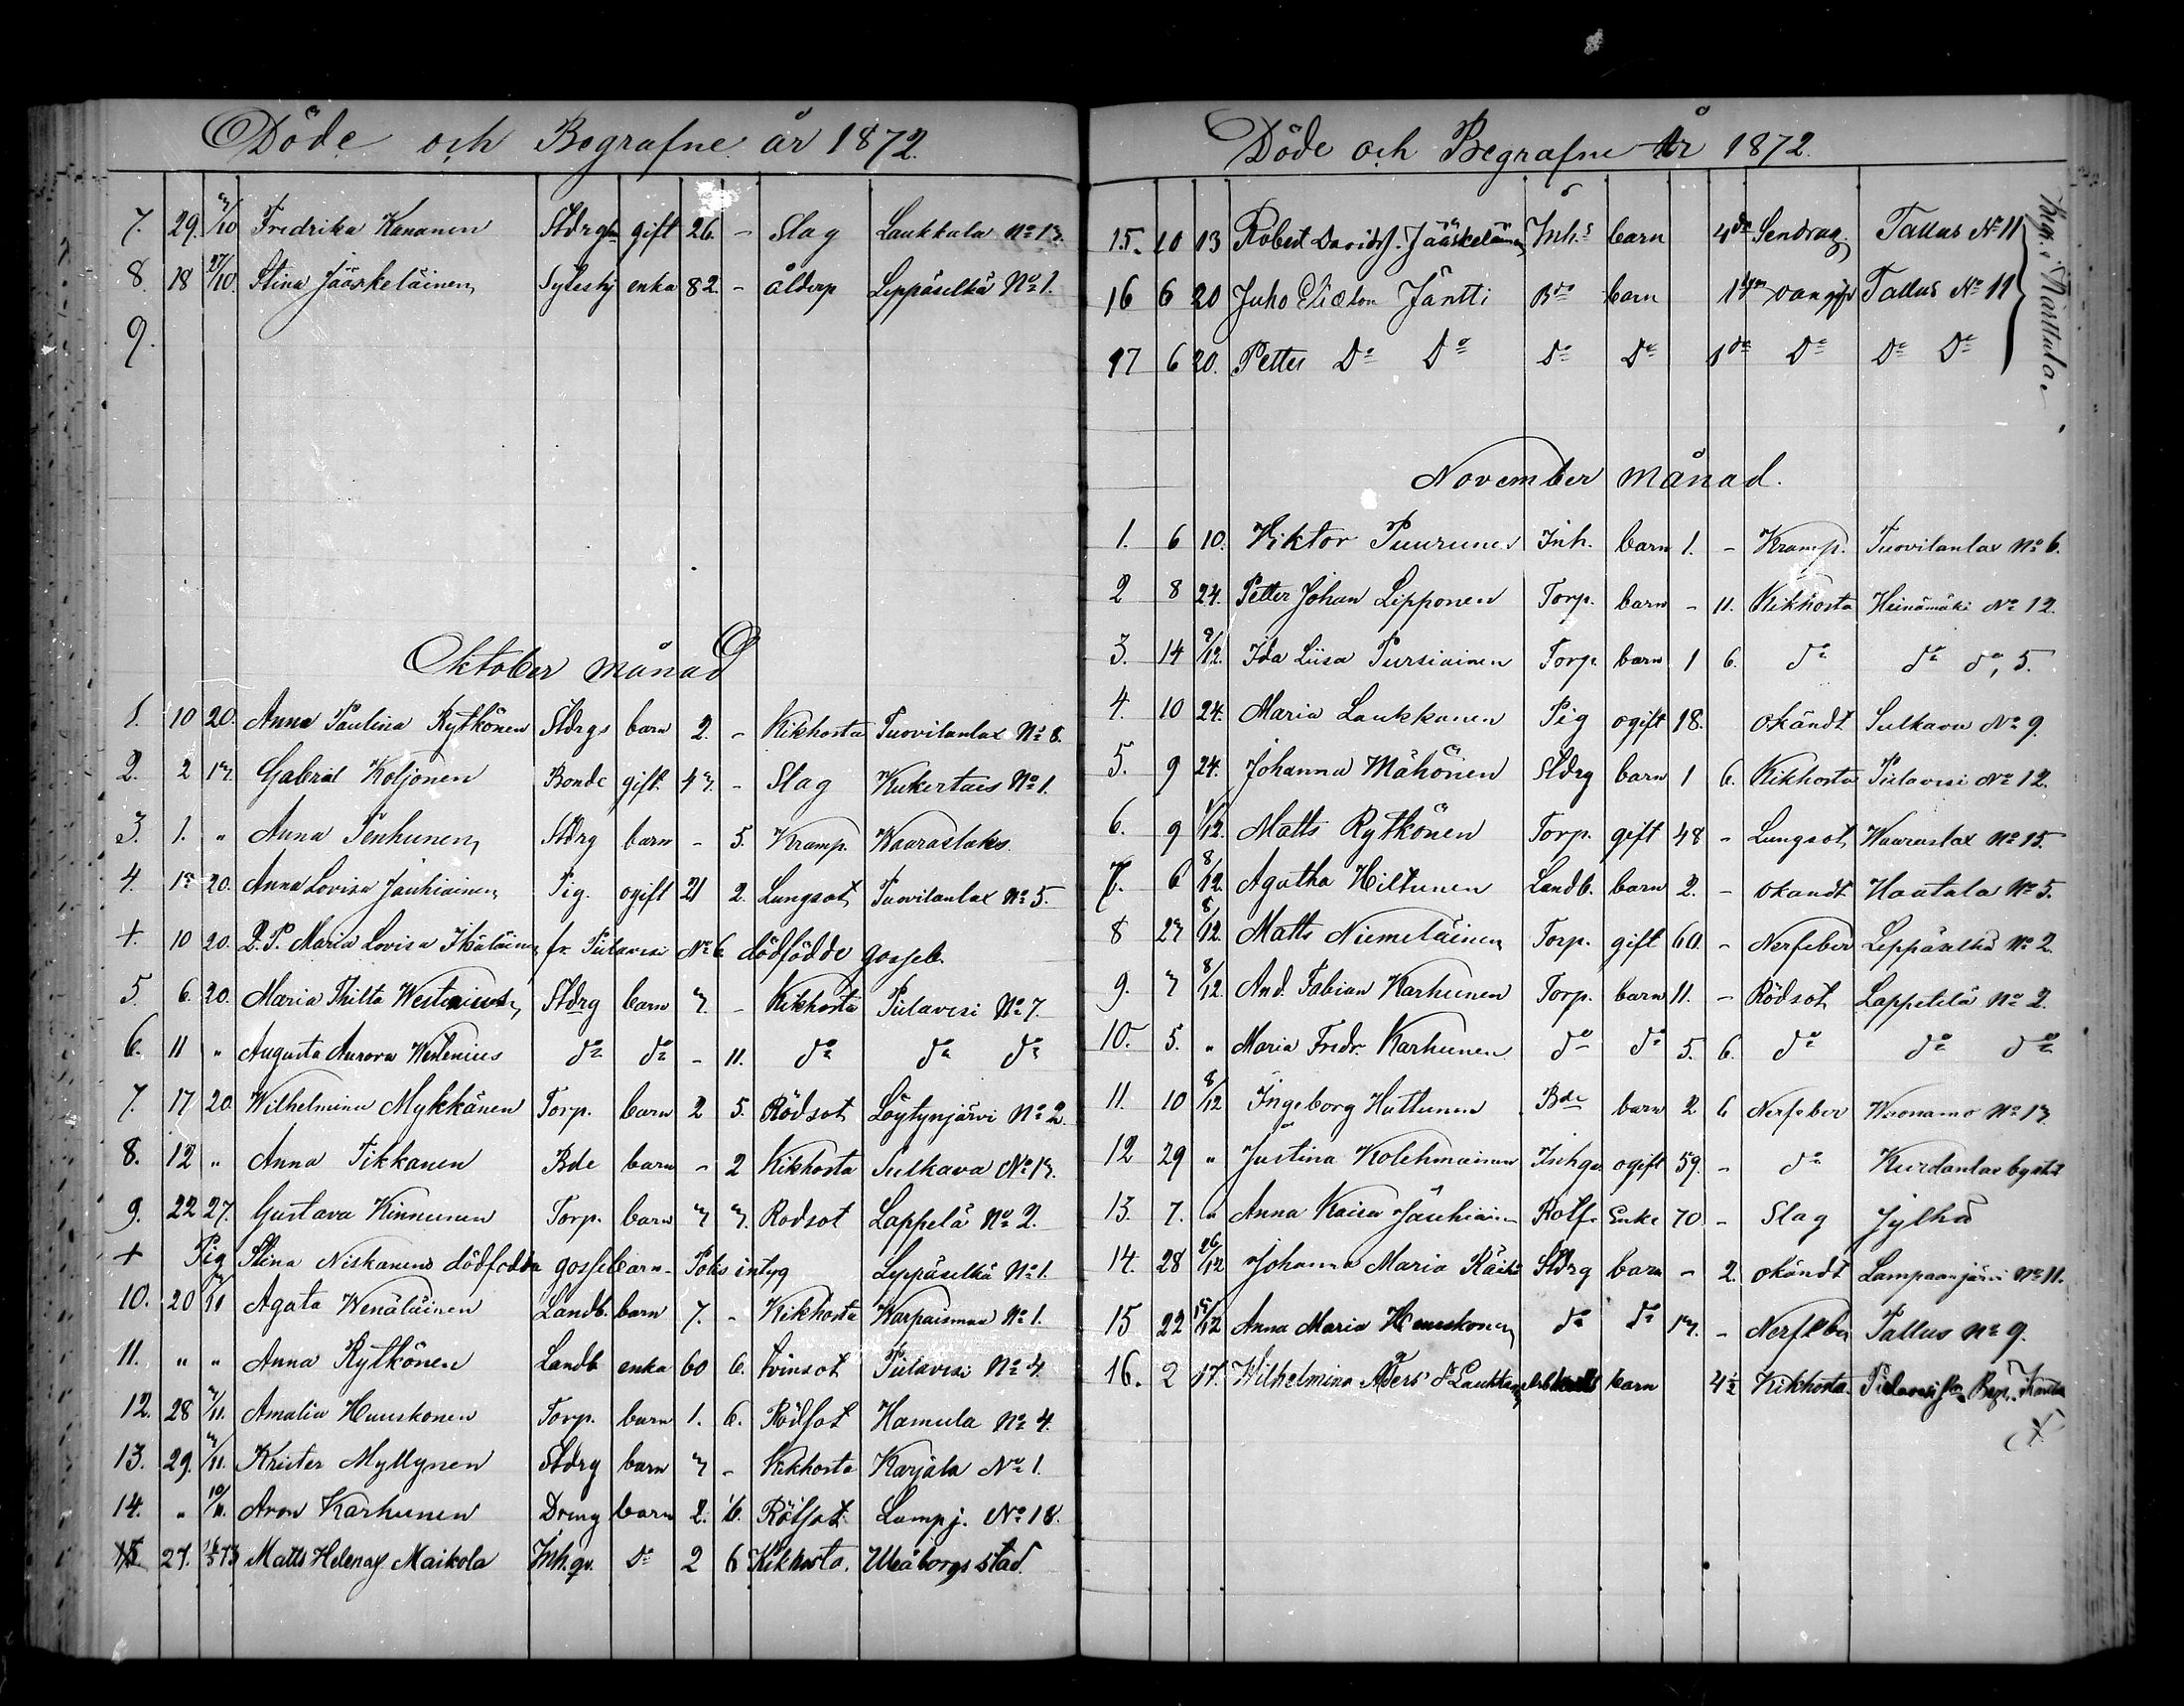 Döde och Begrafne år 1872.
7. 29. 7/10 Fredrika Kananen Stdrghu gift 26. - Slag Laukkala No 17.
8. 18 27/10. Stina Jääskeläinen Syteshj enka 82. - ålderp Leppäselkä No 1.
9.
Oktober månad
1. 10 20. Anna Paulina Rytkönen Stdrgs barn 2. - Kikhosta Tuovilanlax No 8.
2. 2 17. Gabriel Koljonen Bonde gift 47. - Slag Kukertais No 1.
3. 1. " Anna Tenhunen Stdrg barn - 5. Kramp. Waaraslaks.
4. 15 20. Anna Lovisa Jauhiainen Pig. ogift 21 2. Lungsot Tuovilanlax No 5.
+. 10 20. Q. P. Maria Lovisa Ikäläinen fr. Pielavesi No 6. dödfödde gosseb.
5. 6. 20. Maria Thilta Westenius Stdrg barn 7. - Kikhosta Pielavesi No 7.
6. 11 " Augusta Aurora Westenius do do - 11. do do do
7. 17 20 Wilhelmina Mykkänen Torp. barn 2 5. Rödsot Löytynjärvi No 2.
8. 12 " Anna Tikkanen Bde barn - 2 Kikhosta Sulkava No 17.
9. 22 27. Gustava Kinnunen Torp. barn 7 7. Rodsot Lappelä No 2.
+ Pig Stina Niskanens dödfodda gossebarn - Polis intyg Leppäselkä No 1.
10. 20 /11 Agata Wenäläinen Landb. barn 7. - Kikhosta Karpaismaa No 1.
11. " " Anna Rytkönen Landb enka 60 6. tvinsot Pielavesi No 4.
12. 28 /11. Amalia Huuskonen Torp. barn 1. 6. Rödsot Hamula No 4.
13. 29. /11. Krister Myllynen Stdrg barn 7 - Kikhosta Karjala No 1.
14. " 10/11. Aron Karhunen Dreng barn 2. 6. Rötsot Lampj. No 18.
15 27. Matts Helenas. Maikola Inh. qv. Do 2 6 Kikhosta. Uleåborgs stad.
Döde och Begrafne År 1872.
15. 10 13 Robert Davidsf. Jääskeläinen Inh:s barn 4 da Sendrag Tallus No 11
16 6 20 Juho Victor Jäntti Bde barn 1 dgn Tallus No 11
17 6 20. Petter Do Do Do Do 1 dn Do Do Do
Begr. i Karttula.
November månad.
1. 6 10. Viktor Puurunen Inh. barn 1. - Kramp. Tuovilanlax No 6.
2 8 24. Petter Johan Lipponen Torp. barn - 11. Kikhosta Heinämäki No 12.
3. 14 9/12. Ida Liisa Pursiainen Torp. barn 1 6. do do do, 5.
4. 10 24. Maria Laukkanen Pig ogift 18. okändt Sulkava No 9.
5. 9 24. Johanna Mähönen Stdrg barn 1 6. Kikhosta Pielavesi No 12.
6. 9 1/12. Matts Rytkönen Torp. gift 48 - Lungsot Waaraslax No 15.
7. 6 8/12. Agatha Hiltunen Landb. barn 2. - okandt Haatala No 5.
8 27 8/12. Matts Niemeläinen Torp. gift 60. - Nerfeber Leppäselkä No 2.
9. 7 8/12. And. Fabian Karhunen Torp. barn 11. - Rödsot Lappetelä No 2.
10. 5. " Maria Fredr. Karhunen do do 5. 6. do do do
11. 10 8/12 Ingeborg Huttunen Bde barn 2 6 Nerfeber Waonamo No 17.
12 29 " Justina Kolehmainen Inhqv. ogift 59. - do Kurdanlax bystit
13. 7. " Anna Kaisa Jauhiain Rotf. Enke 70 - Slag Jylhä
14. 28 26/12 Johanna Maria Räihä Stdrg barn - 2. okändt Lampaanjärvi No 11.
15 22 15/12 Anna Maria Huuskonen do do 17. - Nerfeber Tallus No 9.
16. 2 17. Wilhelmina Anders' dr Laukkanen barn 4 1/2 Kikhosta Pielavesi